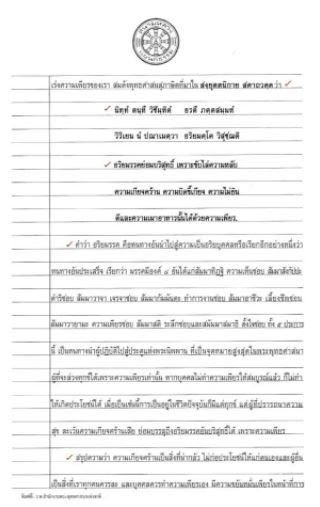 เร่งความเพียรของเรา สมดังพุทธศาสนสุภาษิตที่มาใน สังยุตตนิกาย สคาถวคค ว่า
นิทฺทํ ตนฺทึ วิชิมฺหิตํ อรตึ ภตฺตสมฺมทํ
วิริเยน นํ ปณาเมตฺวา อริยมคฺโค วิสุชฺฌติ
อริยมรรคย่อมบริสุทธิ์ เพราะขับไล่ความหลับ
ความเกียจคร้าน ความบิดขี้เกียจ ความไม่ยิน
ดีและความเมาอาหารนั้นได้ด้วยความเพียร.
คำว่า อริยมรรค คือหนทางอันนำไปสู่ความเป็นอริยบุคคลหรือเรียกอีกอย่างหนึ่งว่า
หนทางอันประเสริฐ เรียกว่า มรรคมีองค์ ๘ อันได้แก่สัมมาทิฏฐิ ความเห็นชอบ สัมมาสังกัปปะ
ดำริชอบ สัมมาวาจา เจรจาชอบ สัมมากัมมันตะ ทำการงานชอบ สัมมาอาชีวะ เลี้ยงชีพชอบ
สัมมาวายามะ ความเพียรชอบ สัมมาสติ ระลึกชอบและสัมมาสมาธิ ตั้งใจชอบ ทั้ง ๘ ประการ
นี้ เป็นหนทางนำผู้ปฏิบัติไปสู่ประตูแห่งพระนิพพาน ที่เป็นจุดหมายสูงสุดในพระพุทธศาสนา
ผู้ที่จะล่วงทุกข์ได้เพราะความเพียรเท่านั้น หากบุคคลไม่ทำความเพียรให้สมบูรณ์แล้ว ก็ไม่ทำ
ให้เกิดประโยชน์ได้ เมื่อเป็นเช่นนี้การเป็นอยู่ในชีวิตปัจจุบันก็มีแต่ทุกข์ แต่ผู้ที่ปรารถนาความ
สุข ละเว้นความเกียจคร้านเสีย ย่อมบรรลุถึงอริยมรรคอันบริสุทธิ์ได้ เพราะความเพียร
สรุปความว่า ความเกียจคร้านเป็นสิ่งที่น่ากลัว ไม่ก่อประโยชน์ให้แก่ตนเองและผู้อื่น
เป็นสิ่งที่เราทุกคนควรละ และบุคคลควรทำความเพียรเอง มีความขยันหมั่นเพียรในหน้าที่การ